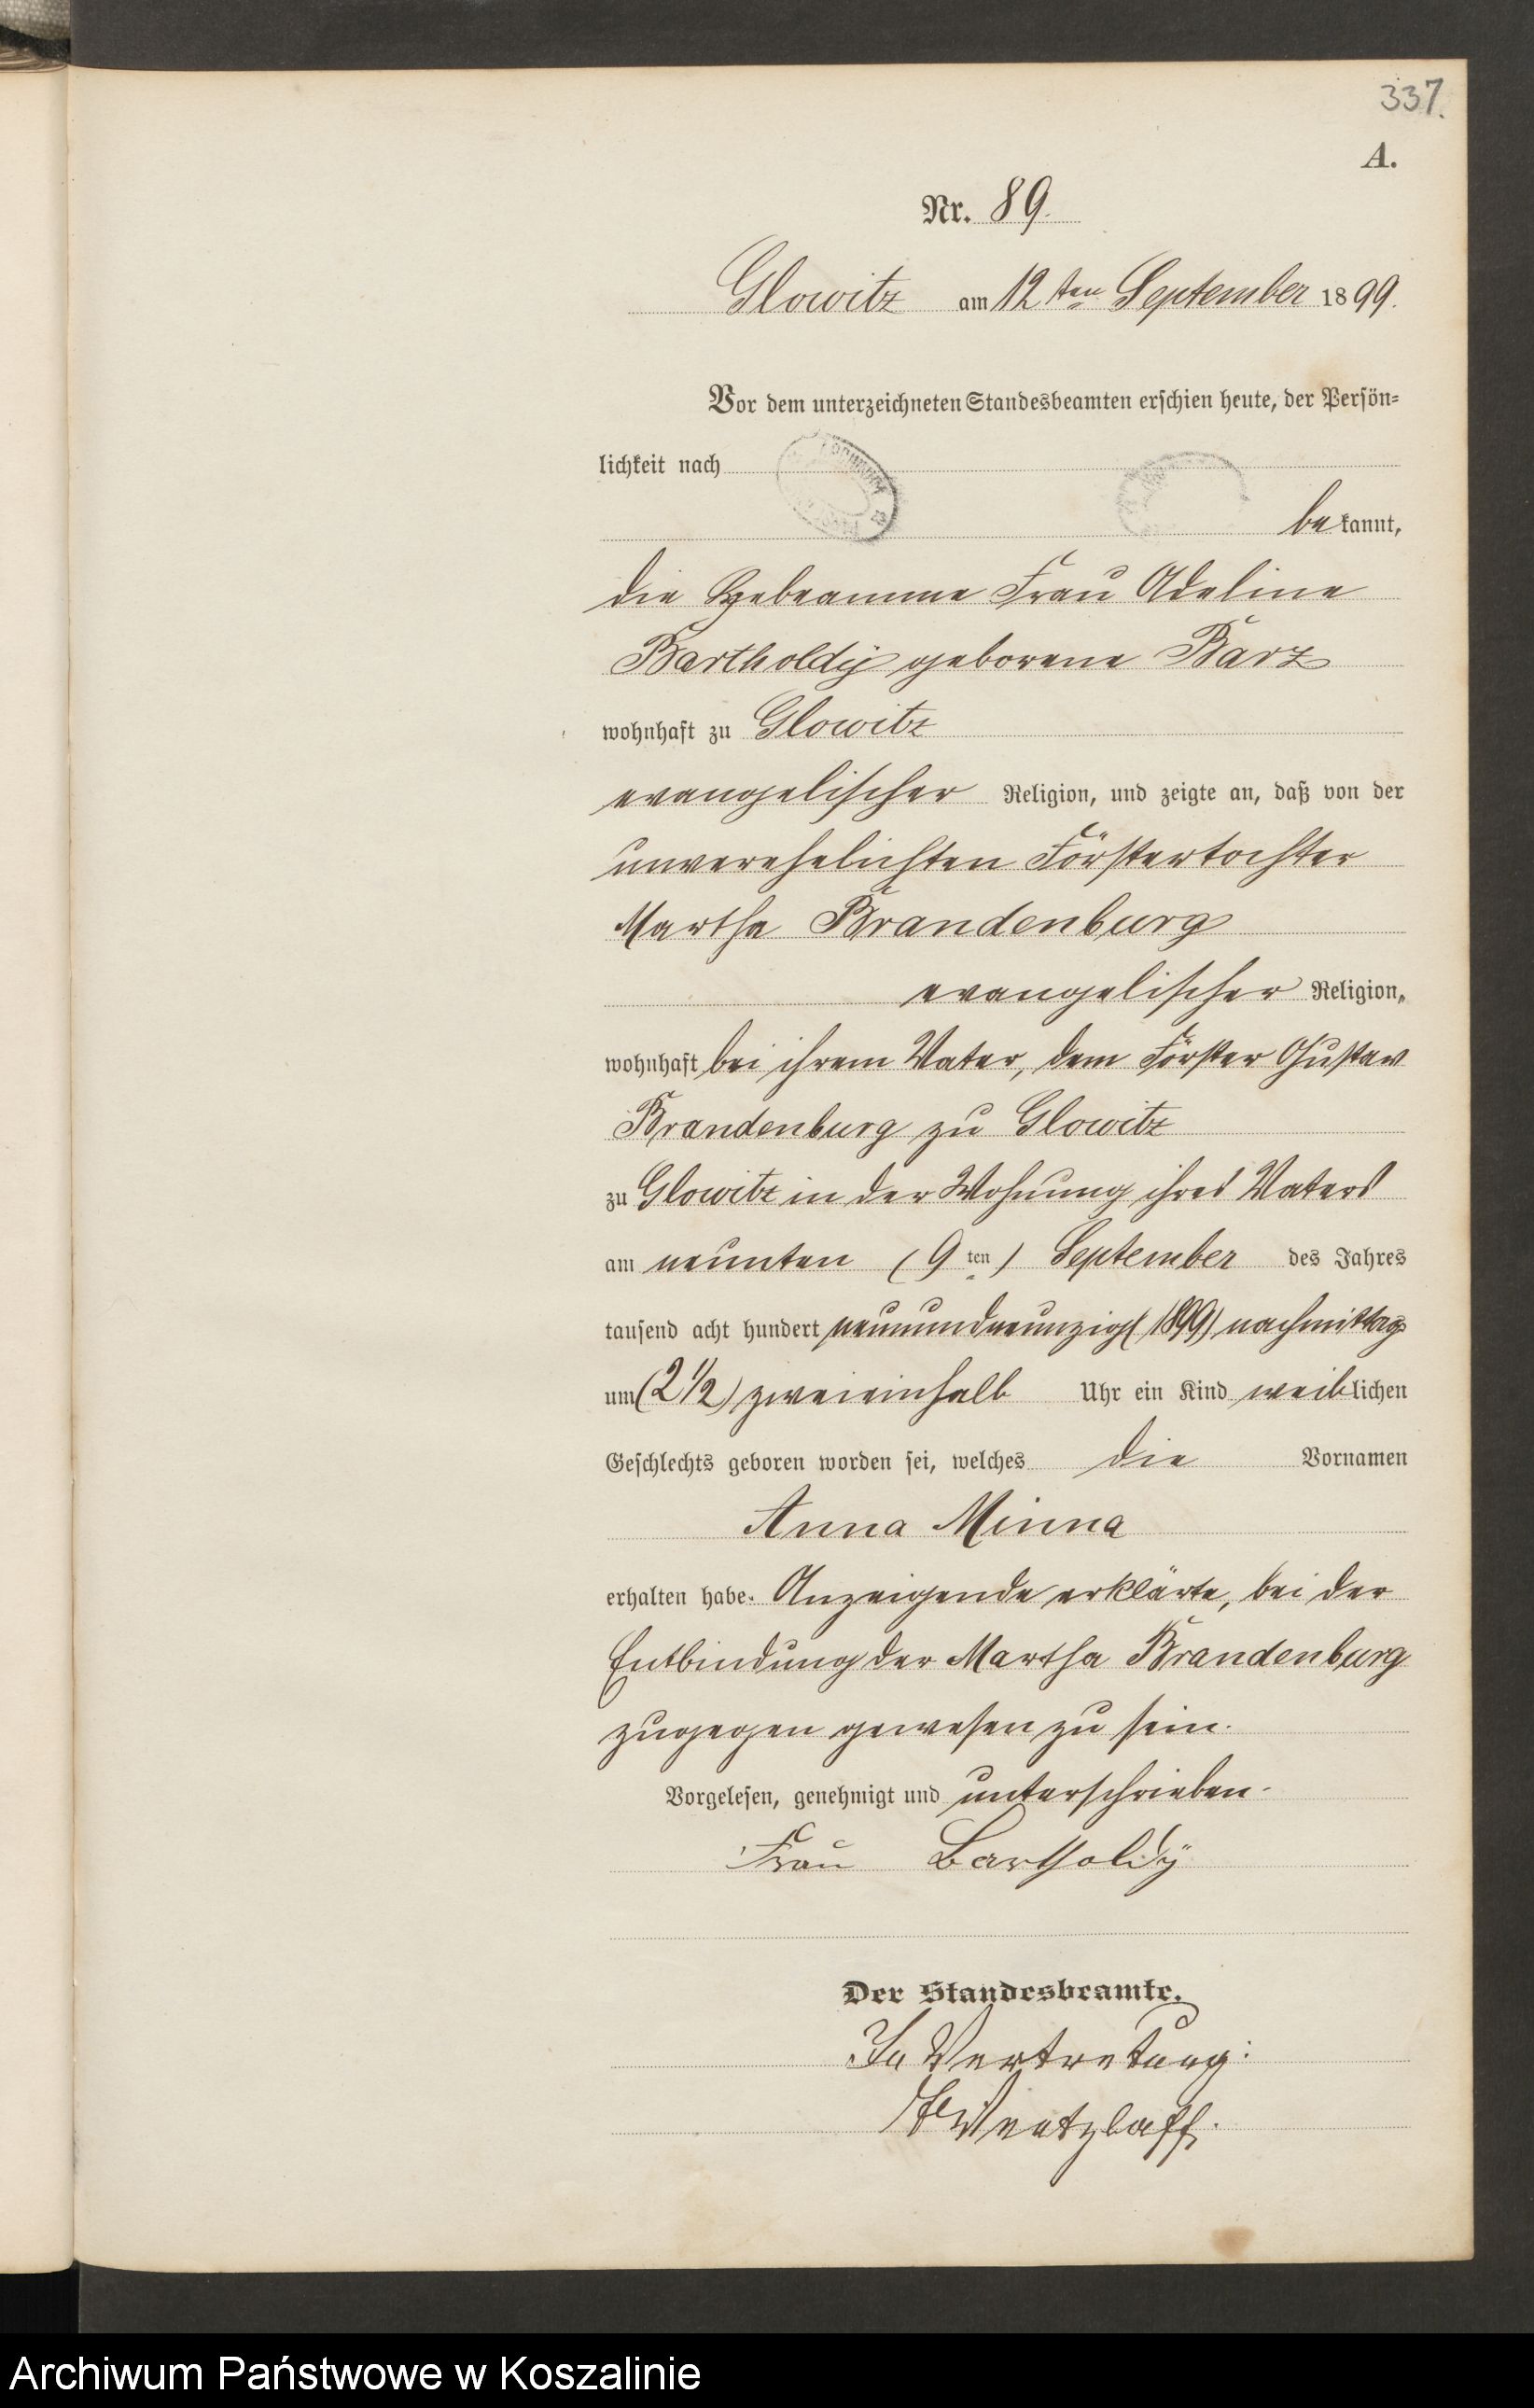 337.
A.
Nr. 89.
Glowitz am 12ten September 1899.
Vor dem unterzeichneten Standesbeamten erschien heute, der Persön=
lichkeit nach
bekannt,
die Hebeamme Frau Adeline
Bartholdÿ geborene Barz
wohnhaft zu Glowitz
evangelischer Religion, und zeigte an, daß von der
unverehelichten Förstertochter
Martha Brandenburg
evangelischer Religion,
wohnhaft bei ihrem Vater, dem Förster Gustav
Brandenburg zu Glowitz
zu Glowitz in der Wohnung ihres Vaters
am neunten (9ten) September des Jahres
tausend acht hundert neunundneunzig (1899) nachmittags
um (2 1/2) zweieinhalb Uhr ein Kind weiblichen
Geschlechts geboren worden sei, welches die Vornamen
Anna Minna
erhalten habe. Anzeigende erklärte, bei der
Entbindung der Martha Brandenburg
zugegen gewesen zu sein.
Vorgelesen, genehmigt und unterschrieben.
Frau Bartholdÿ
Der Standesbeamte.
In Vertretung:
Wentzlaff.
Archiwum Państwowe w Koszalinie